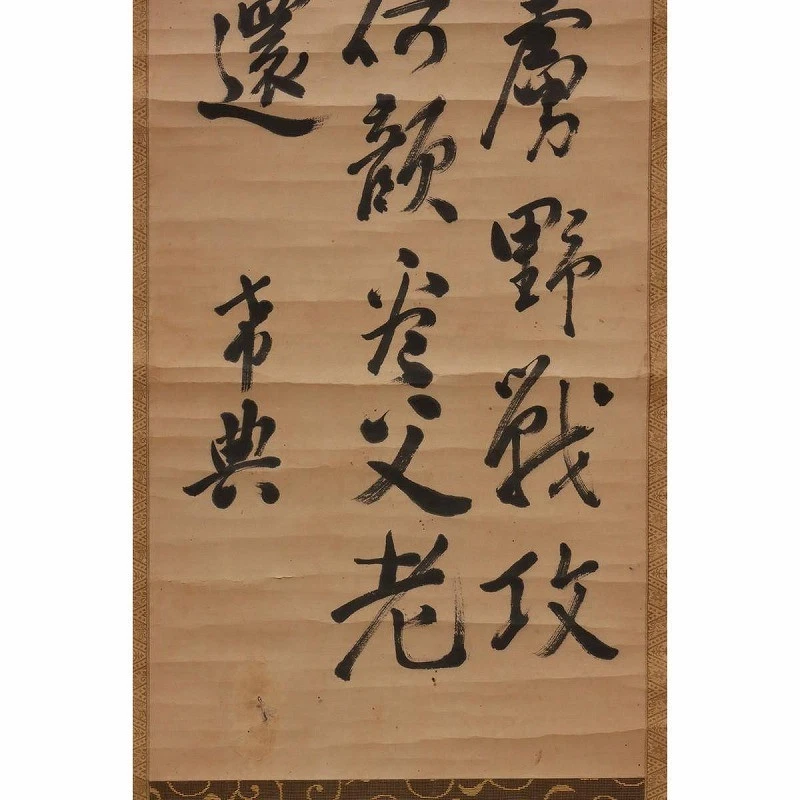 虜野戰攻
何顔看父老
還
希典